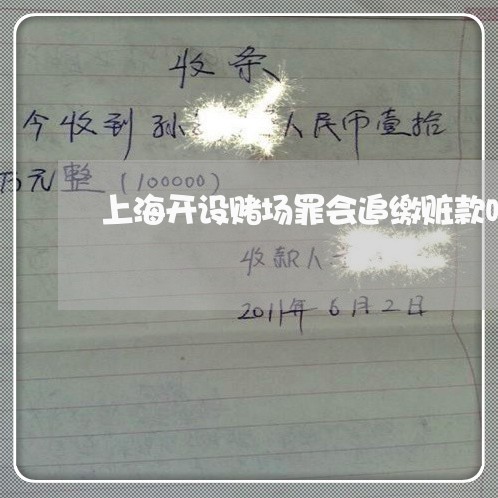 收条
今收到孙 人民币壹拾
万元整(100000)
上海开设赌场罪会追缴赃款
收款人
2011年6月2日